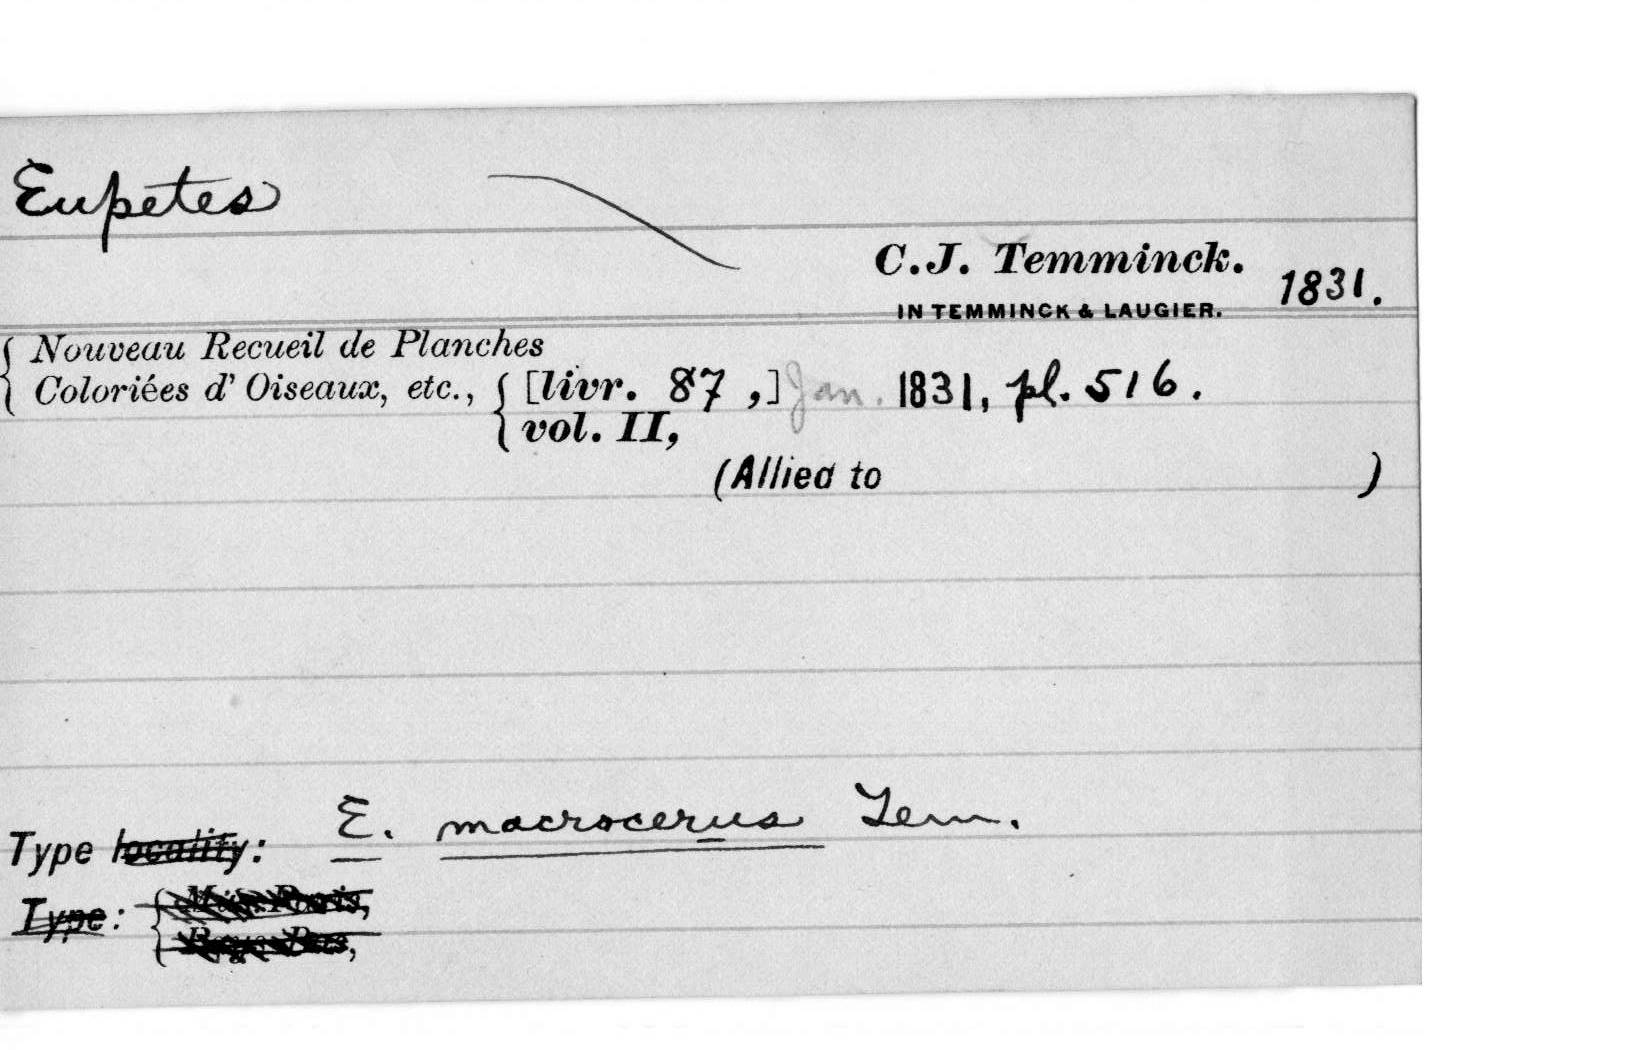 Eupetes
C.J. Temminck.
IN TEMMINCK & LAUGIER.
1831.
Nouveau Recueil de Planches
Coloriées d' Oiseaux, etc., [livr. 87 ,] Jan. 1831, pl. 516.
vol. II,
(Allied to )
Type locality: E. macrocerus Tem.
Type: